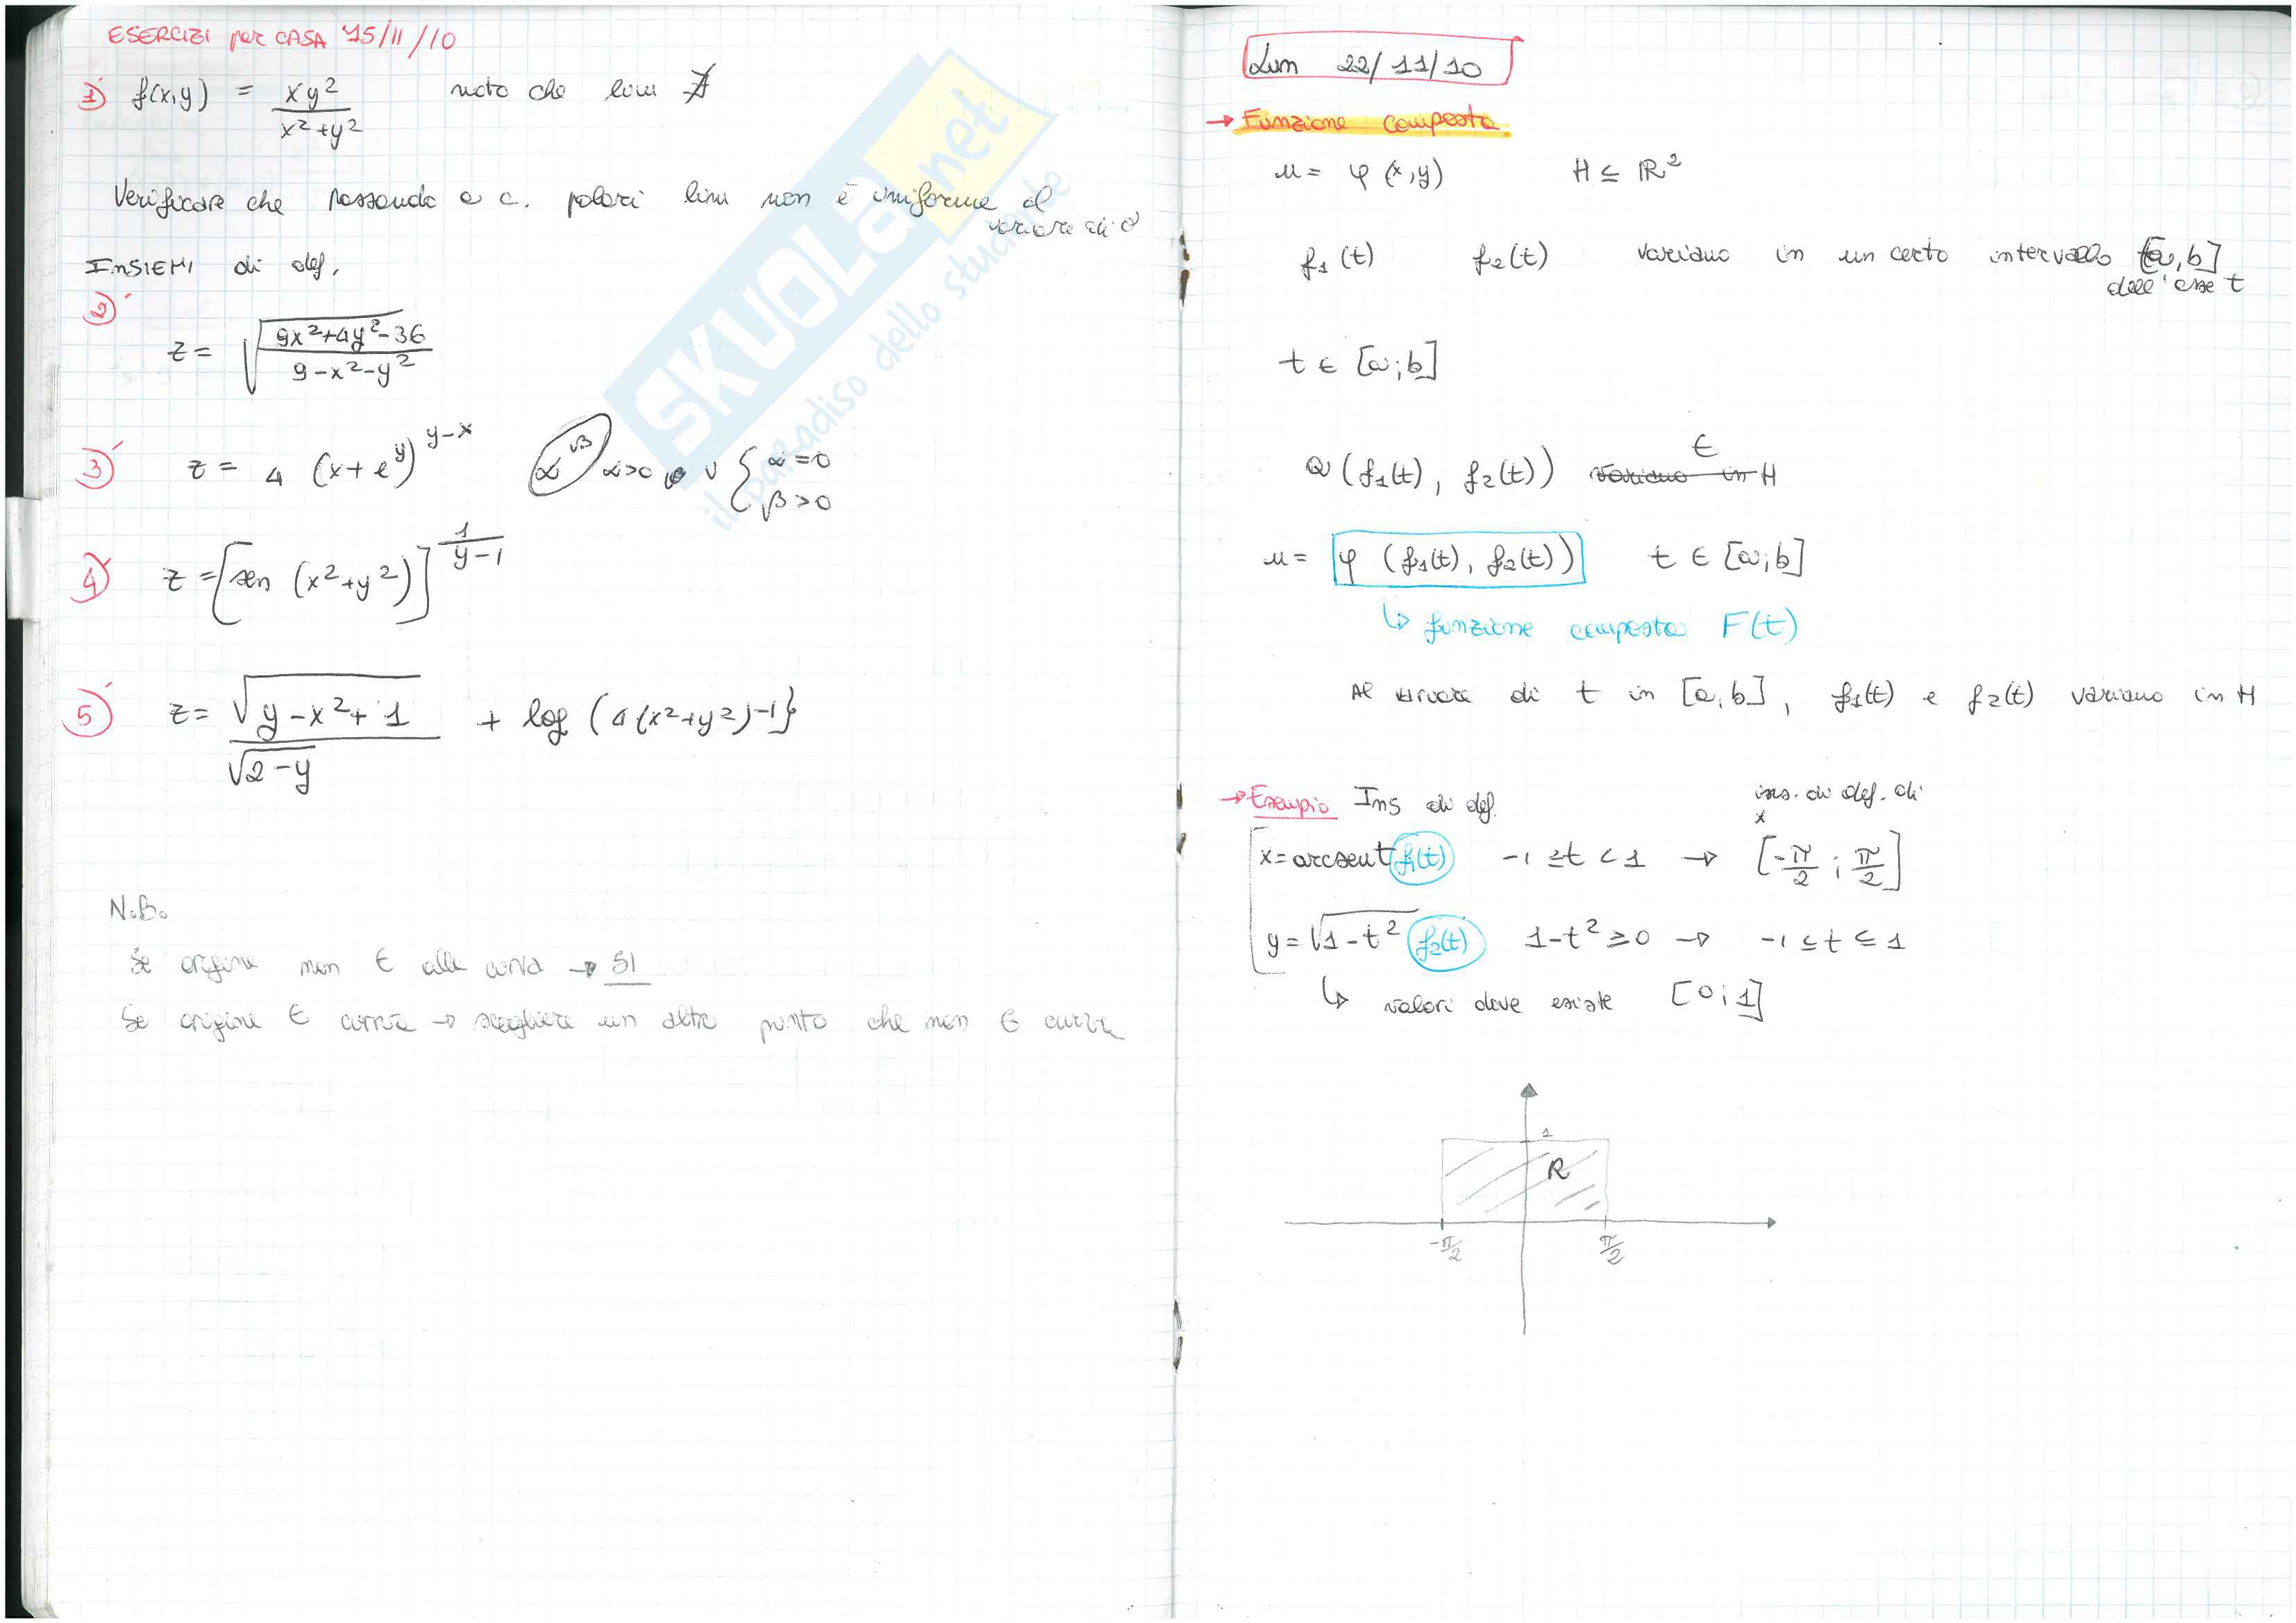 ESERCIZI per CASA 15/11/10
1) f(x,y) = xy² / x²+y² noto che lim ∄
Verificare che passando a c. polari lim non è uniforme al
variare di θ
INSIEMI di def.
2) z = √(9x²+4y²-36 / 9-x²-y²)
3) z = 4 (x+e^y)^(y-x) α^β α>0 v { α=0
β>0
4) z = [sen (x²+y²)]^(1/(y-1))
5) z = √(y-x²+1) / √(2-y) + log (4(x²+y²)-1}
N.B.
Se origine non ∈ alla curva → SI
Se origine ∈ curva → scegliere un altro punto che non ∈ curva
SKUOLA.net
il paradiso dello studente
Lun 22/11/10
→ Funzione composta
u = φ (x,y) H ⊆ ℝ²
f₁(t) f₂(t) variano in un certo intervallo [a,b]
dell'asse t
t ∈ [a;b]
Q (f₁(t), f₂(t)) variano in H
∈
u = φ (f₁(t), f₂(t)) t ∈ [a;b]
↳ funzione composta F(t)
Al variare di t in [a,b], f₁(t) e f₂(t) variano in H
→ Esempio Ins di def. ins. di def. di
x
x = arcsent f₁(t) -1 ≥ t < 1 → [-π/2 ; π/2]
y = √1-t² f₂(t) 1-t² ≥ 0 → -1 ≤ t ≤ 1
↳ valori dove esiste [0;1]
1
R
-π/2 π/2